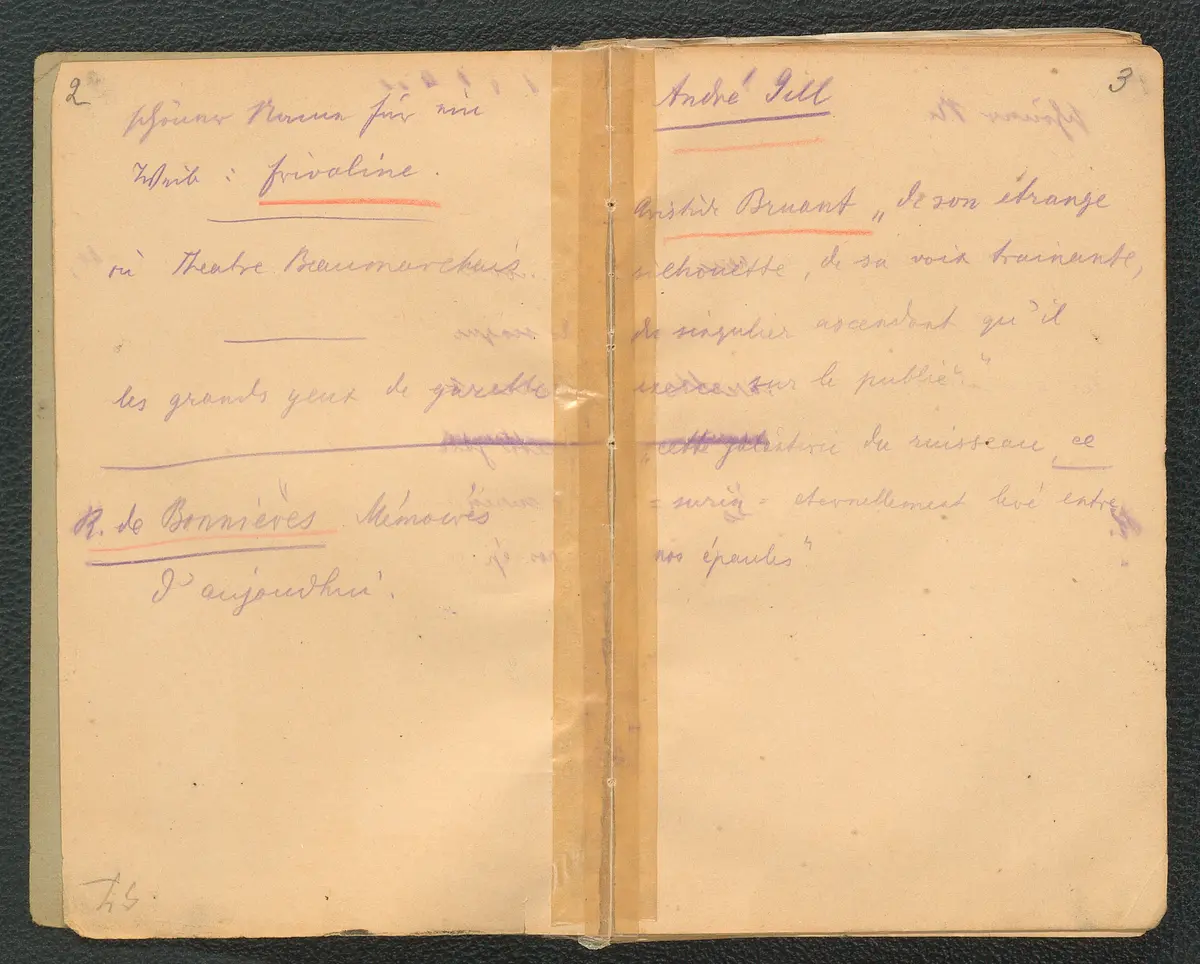 2
schöner Name für ein
Weib: frivoline.
Theatre Beaumarchais.
les grands yeux de gazelle
R. de Bonnières Mémoires
d'aujourdhui.
3
André Gill
Aristide Bruant „de son etrange
silhouette, de sa voix trainante,
du singulier ascendant qu'il
exerce sur le public"
„cette du ruisseau, ce
= surin = eternellement levé entre
nos épaules"